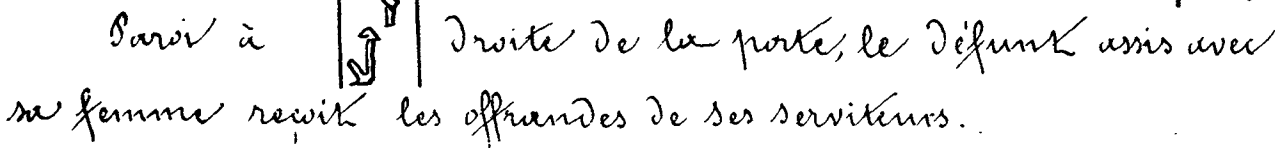 Paroi à droite de la porte, le défunt assis avec
sa femme reçoit les offrandes de ses serviteurs.